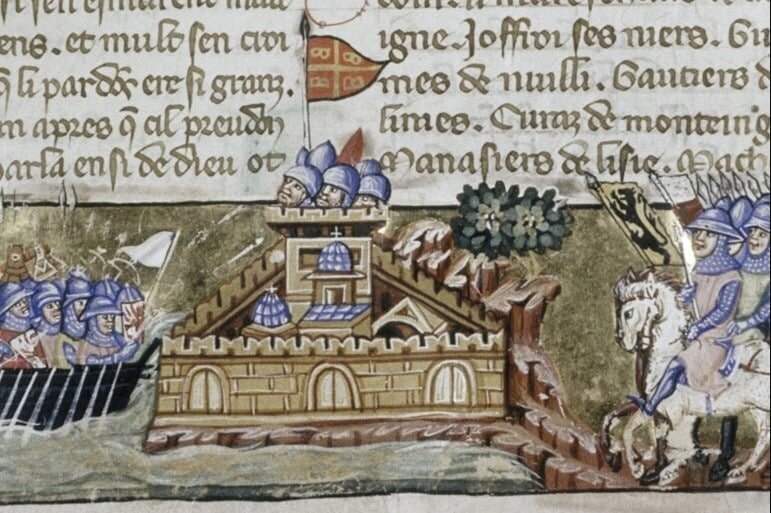 ens. et mult sen croi
q̃ li pardõs ere si granz.
n apres q̃ cil preudõ
parla ensi de dieu ot
igne. Joffroi ses niers. Gu
mes de nuilli. Gautiers d
limes. Curaz de monteing
Manasiers de lisle. Mach